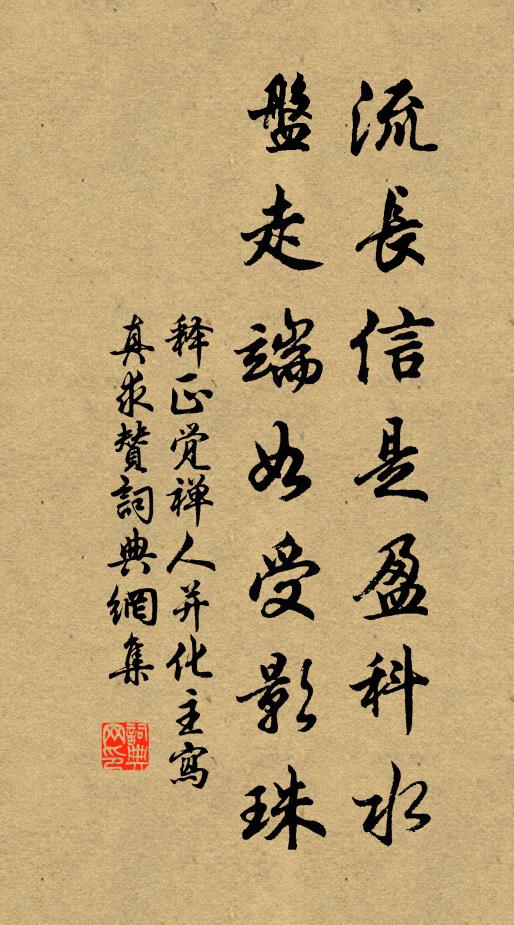 流長信是盈科水
盤走端如受影珠
释正覚禅人并化主寫
真求贊詞典網集
詞典
网印